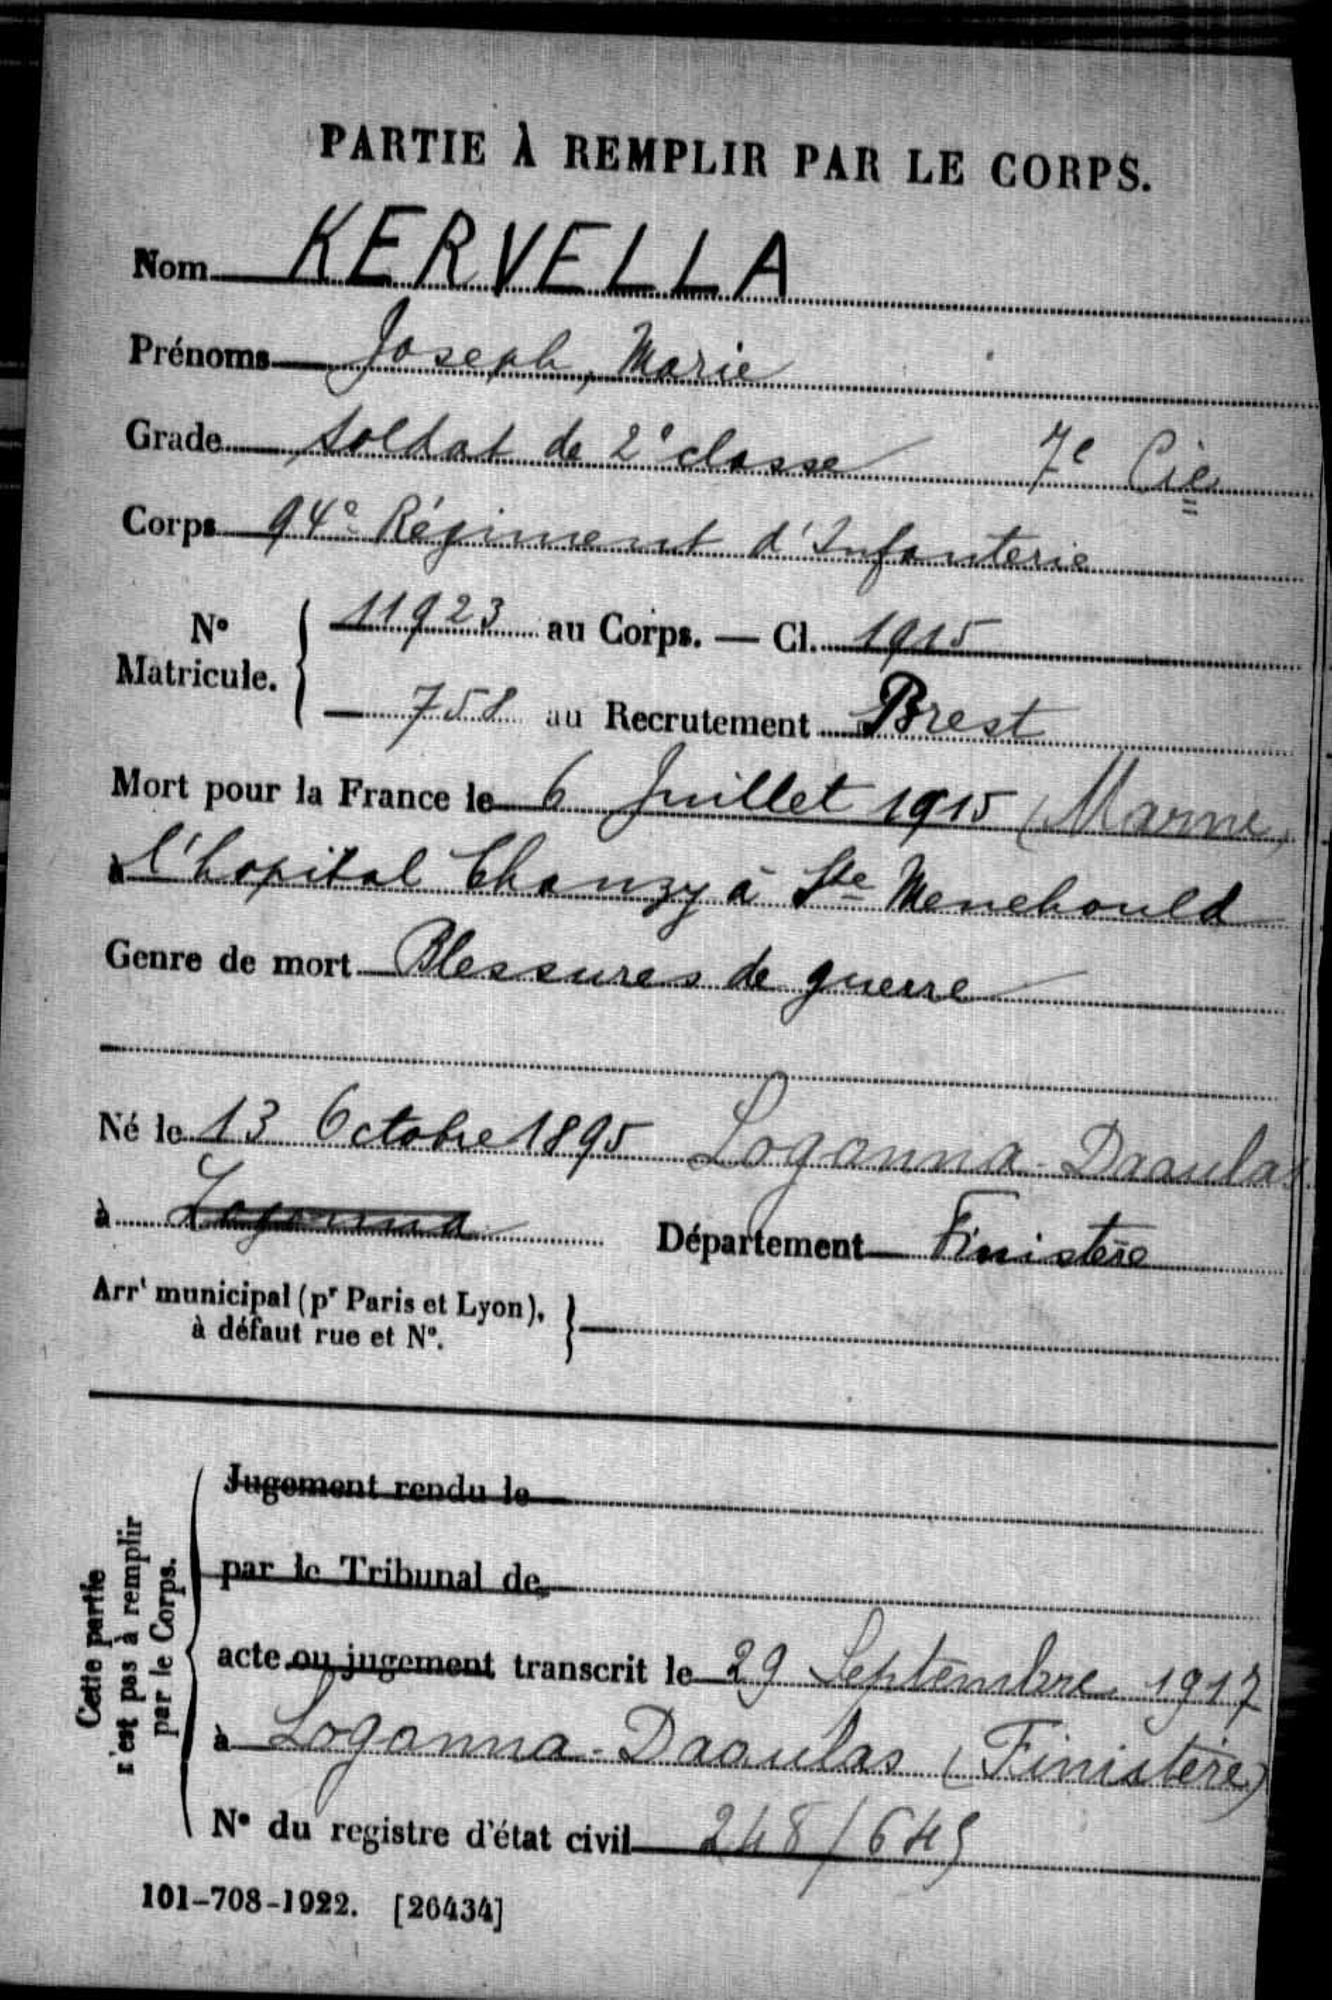 PARTIE À REMPLIR PAR LE CORPS.
Nom KERVELLA
Prénoms Joseph, Marie
Grade soldat de 2e classe 7e Cie
Corps 94e Régiment d'Infanterie
No Matricule. { 11923 au Corps. — Cl. 1915
758 au Recrutement Brest
Mort pour la France le 6 Juillet 1915 (Marne)
à l'hopital Chanzy à Ste Menehould
Genre de mort Blessures de guerre
Né le 13 Octobre 1895 Logonna-Daoulas
à Logonna Département Finistère
Arrt municipal (pr Paris et Lyon), }
à défaut rue et No.
Cette partie
n'est pas à remplir
par le Corps.
Jugement rendu le
par le Tribunal de
acte ou jugement transcrit le 29 Septembre 1917
à Logonna-Daoulas (Finistère)
No du registre d'état civil 248/645
101-708-1922. [26434]